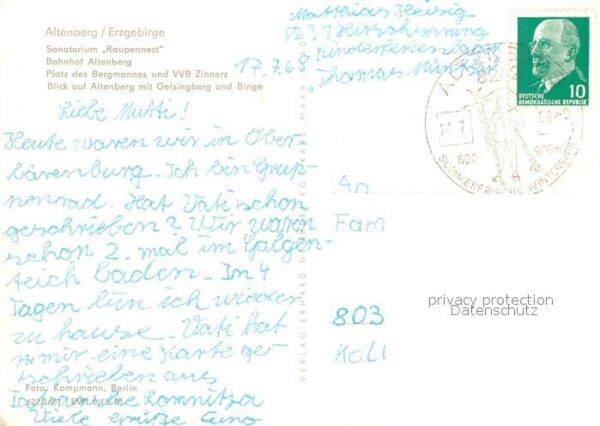 Altenberg / Erzgebirge
Sanatorium „Raupennest"
Bahnhof Altenberg
Platz des Bergmannes und VVB Zinnerz
Blick auf Altenberg mit Geisingberg und Binge
17.7.68
Liebe Mutti!
Heute waren wir in Ober-
bärenburg. Ich bin Grup-
nonrad. Hat Vati schon
geschrieben? Wir waren
schon 2. mal im Galgen-
teich baden. In 4
Tagen bin ich wieder
zu hause. Vati hat
mir eine Karte ge-
schrieben aus
Lomnitza
Viele Grüße
Foto: Kampmann, Berlin
Matthias
8231 Hirschsprung
Kinderferienlager
"Thomas Müntzer"
DEUTSCHE
DEMOKRATISCHE REPUBLIK
10
SOMMERFRISCHE · WINTERSPORT
VERLAG ERHARD
KARL-MARX-STADT
An
Fam
803
privacy protection
Datenschutz